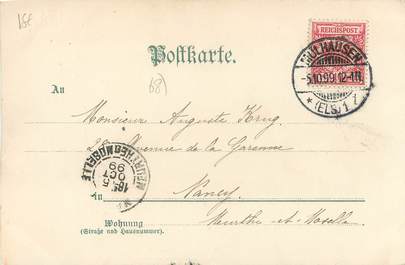 REICHSPOST
MÜLHAUSEN
5.10.99.12-1N.
* (ELS.) 1
Postkarte.
(68)
An
Monsieur Auguste Krug
Avenue de la Garenne
MEURTHE ET MOSELLE
5
OCT
99
in Nancy
Meurthe-et-Moselle
Wohnung
(Straße und Hausnummer).